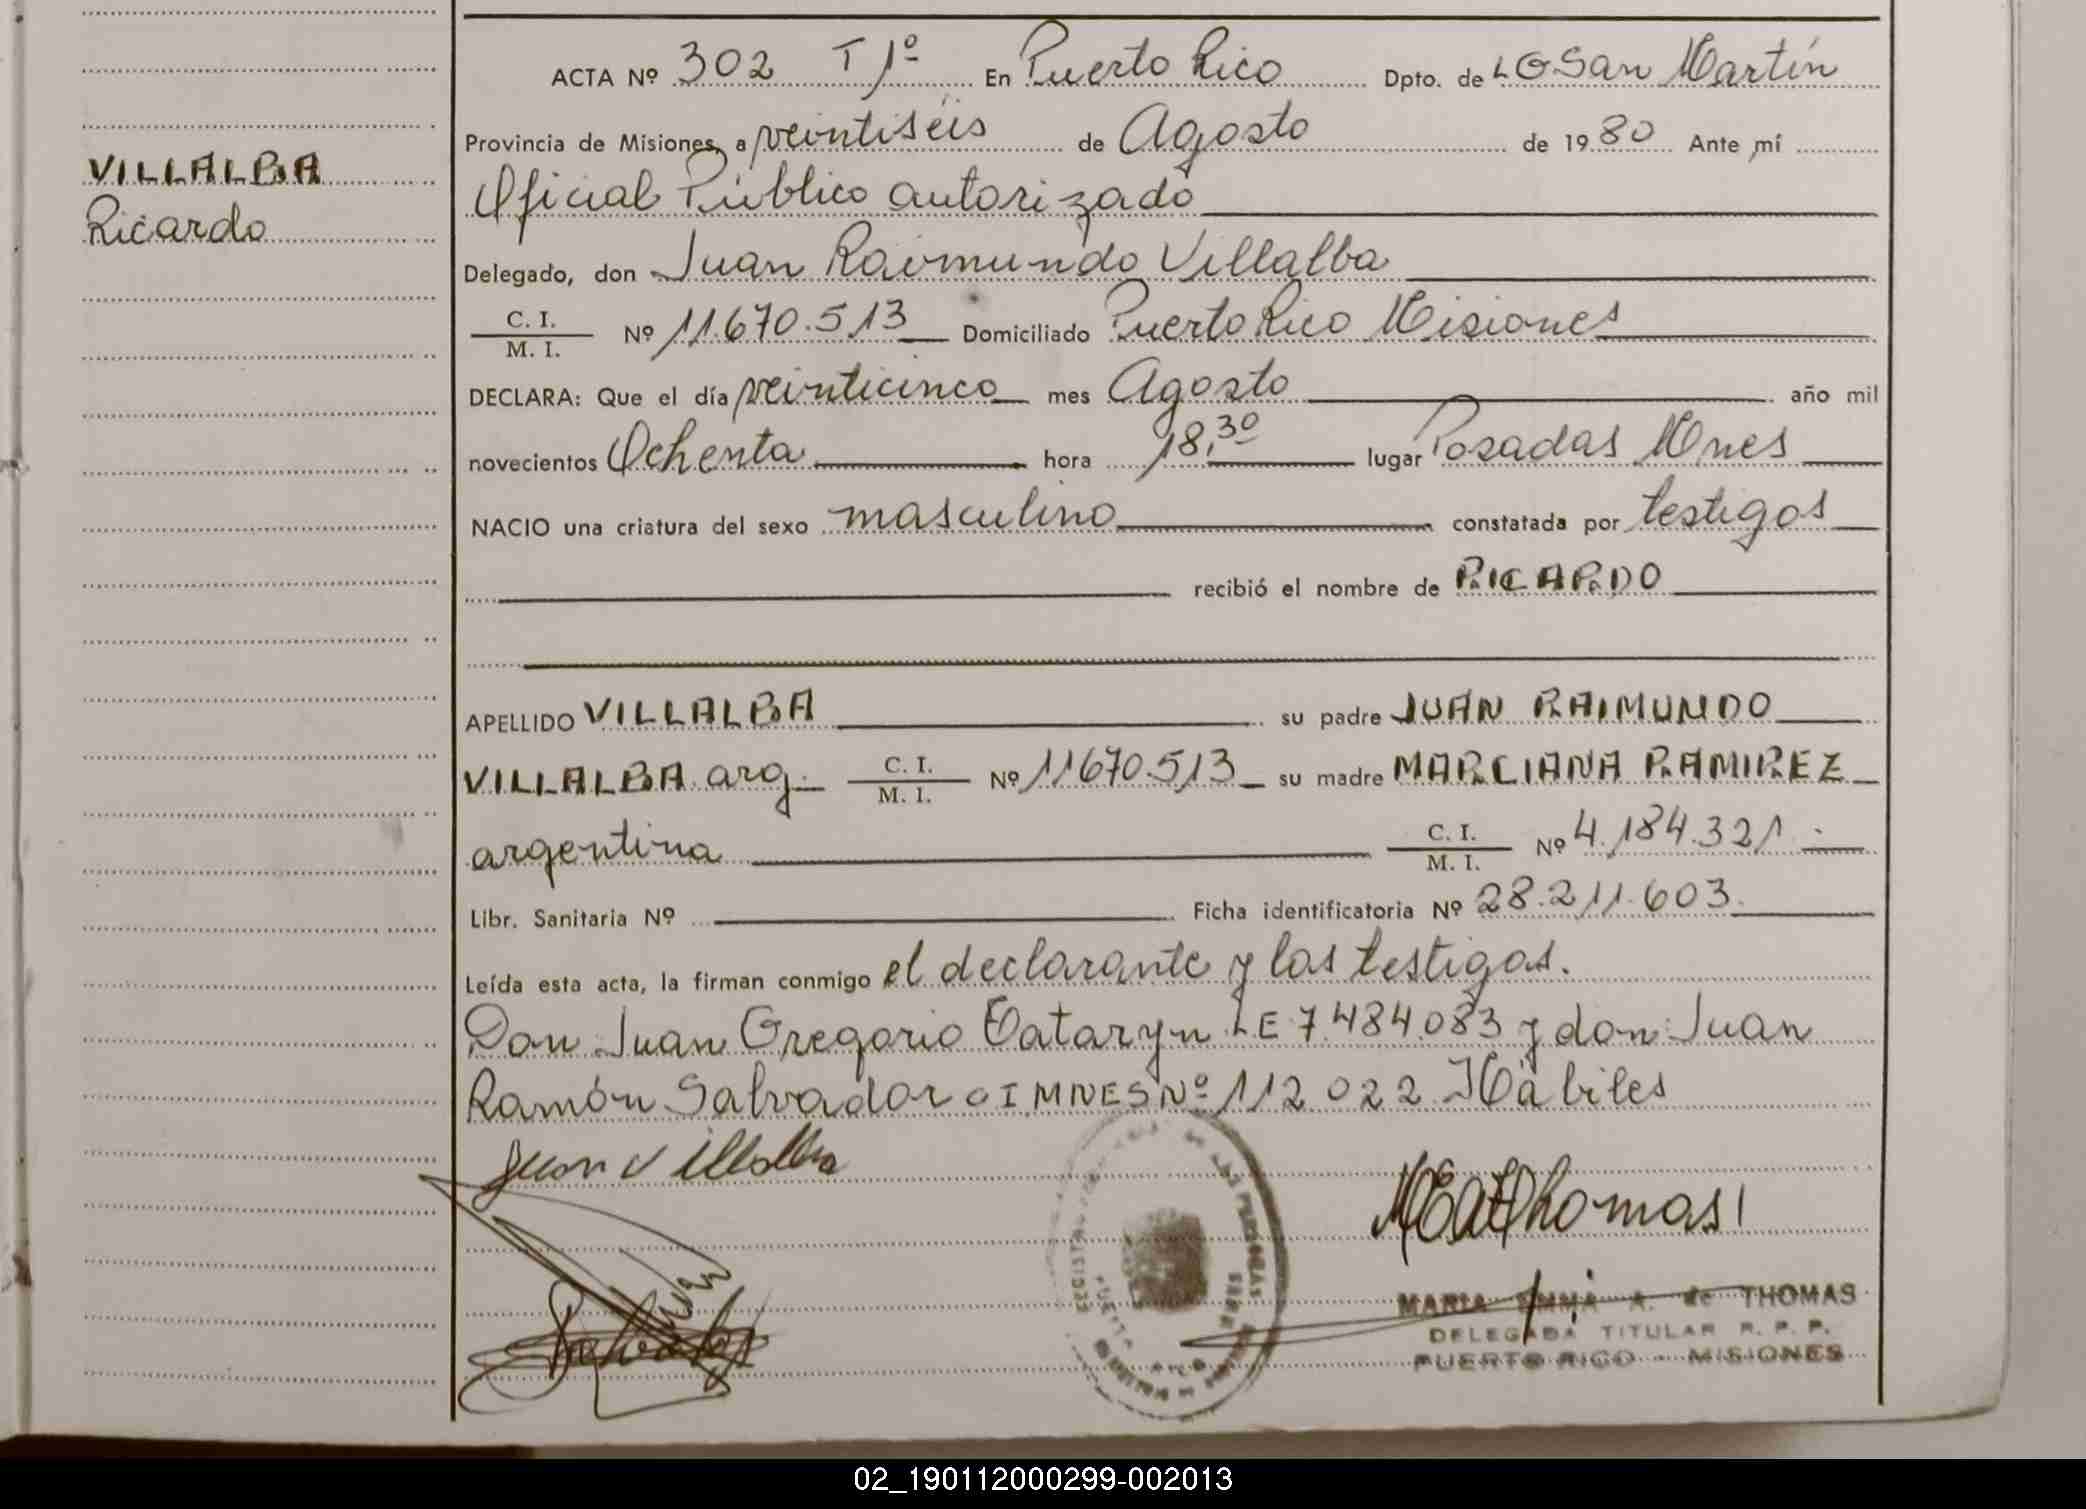 VILLALBA
Ricardo
ACTA Nº 302 T 1º En Puerto Rico Dpto. de LG San Martín
Provincia de Misiones, a veintiséis de Agosto de 1980 Ante mí
Oficial Público autorizado
Delegado, don Juan Raimundo Villalba
C. I.
M. I. Nº 11.670.513 Domiciliado Puerto Rico Misiones
DECLARA: Que el día veinticinco mes Agosto año mil
novecientos Ochenta hora 18,30 lugar Posadas Mnes
NACIO una criatura del sexo masculino constatada por testigos
recibió el nombre de RICARDO
APELLIDO VILLALBA su padre JUAN RAIMUNDO
VILLALBA arg. C. I.
M. I. Nº 11670.513 su madre MARCIANA RAMIREZ
argentina C. I.
M. I. Nº 4.184.321
Libr. Sanitaria Nº Ficha identificatoria Nº 28.211.603.
Leída esta acta, la firman conmigo el declarante y los testigos.
Don Juan Gregorio Tataryn LE 7.484.083 y don Juan
Ramón Salvador CI MNES Nº 112.022 Hábiles
Juan Villalba
MARIA EMMA A. de THOMAS
DELEGADA TITULAR R. P. P.
PUERTO RICO - MISIONES
02_190112000299-002013